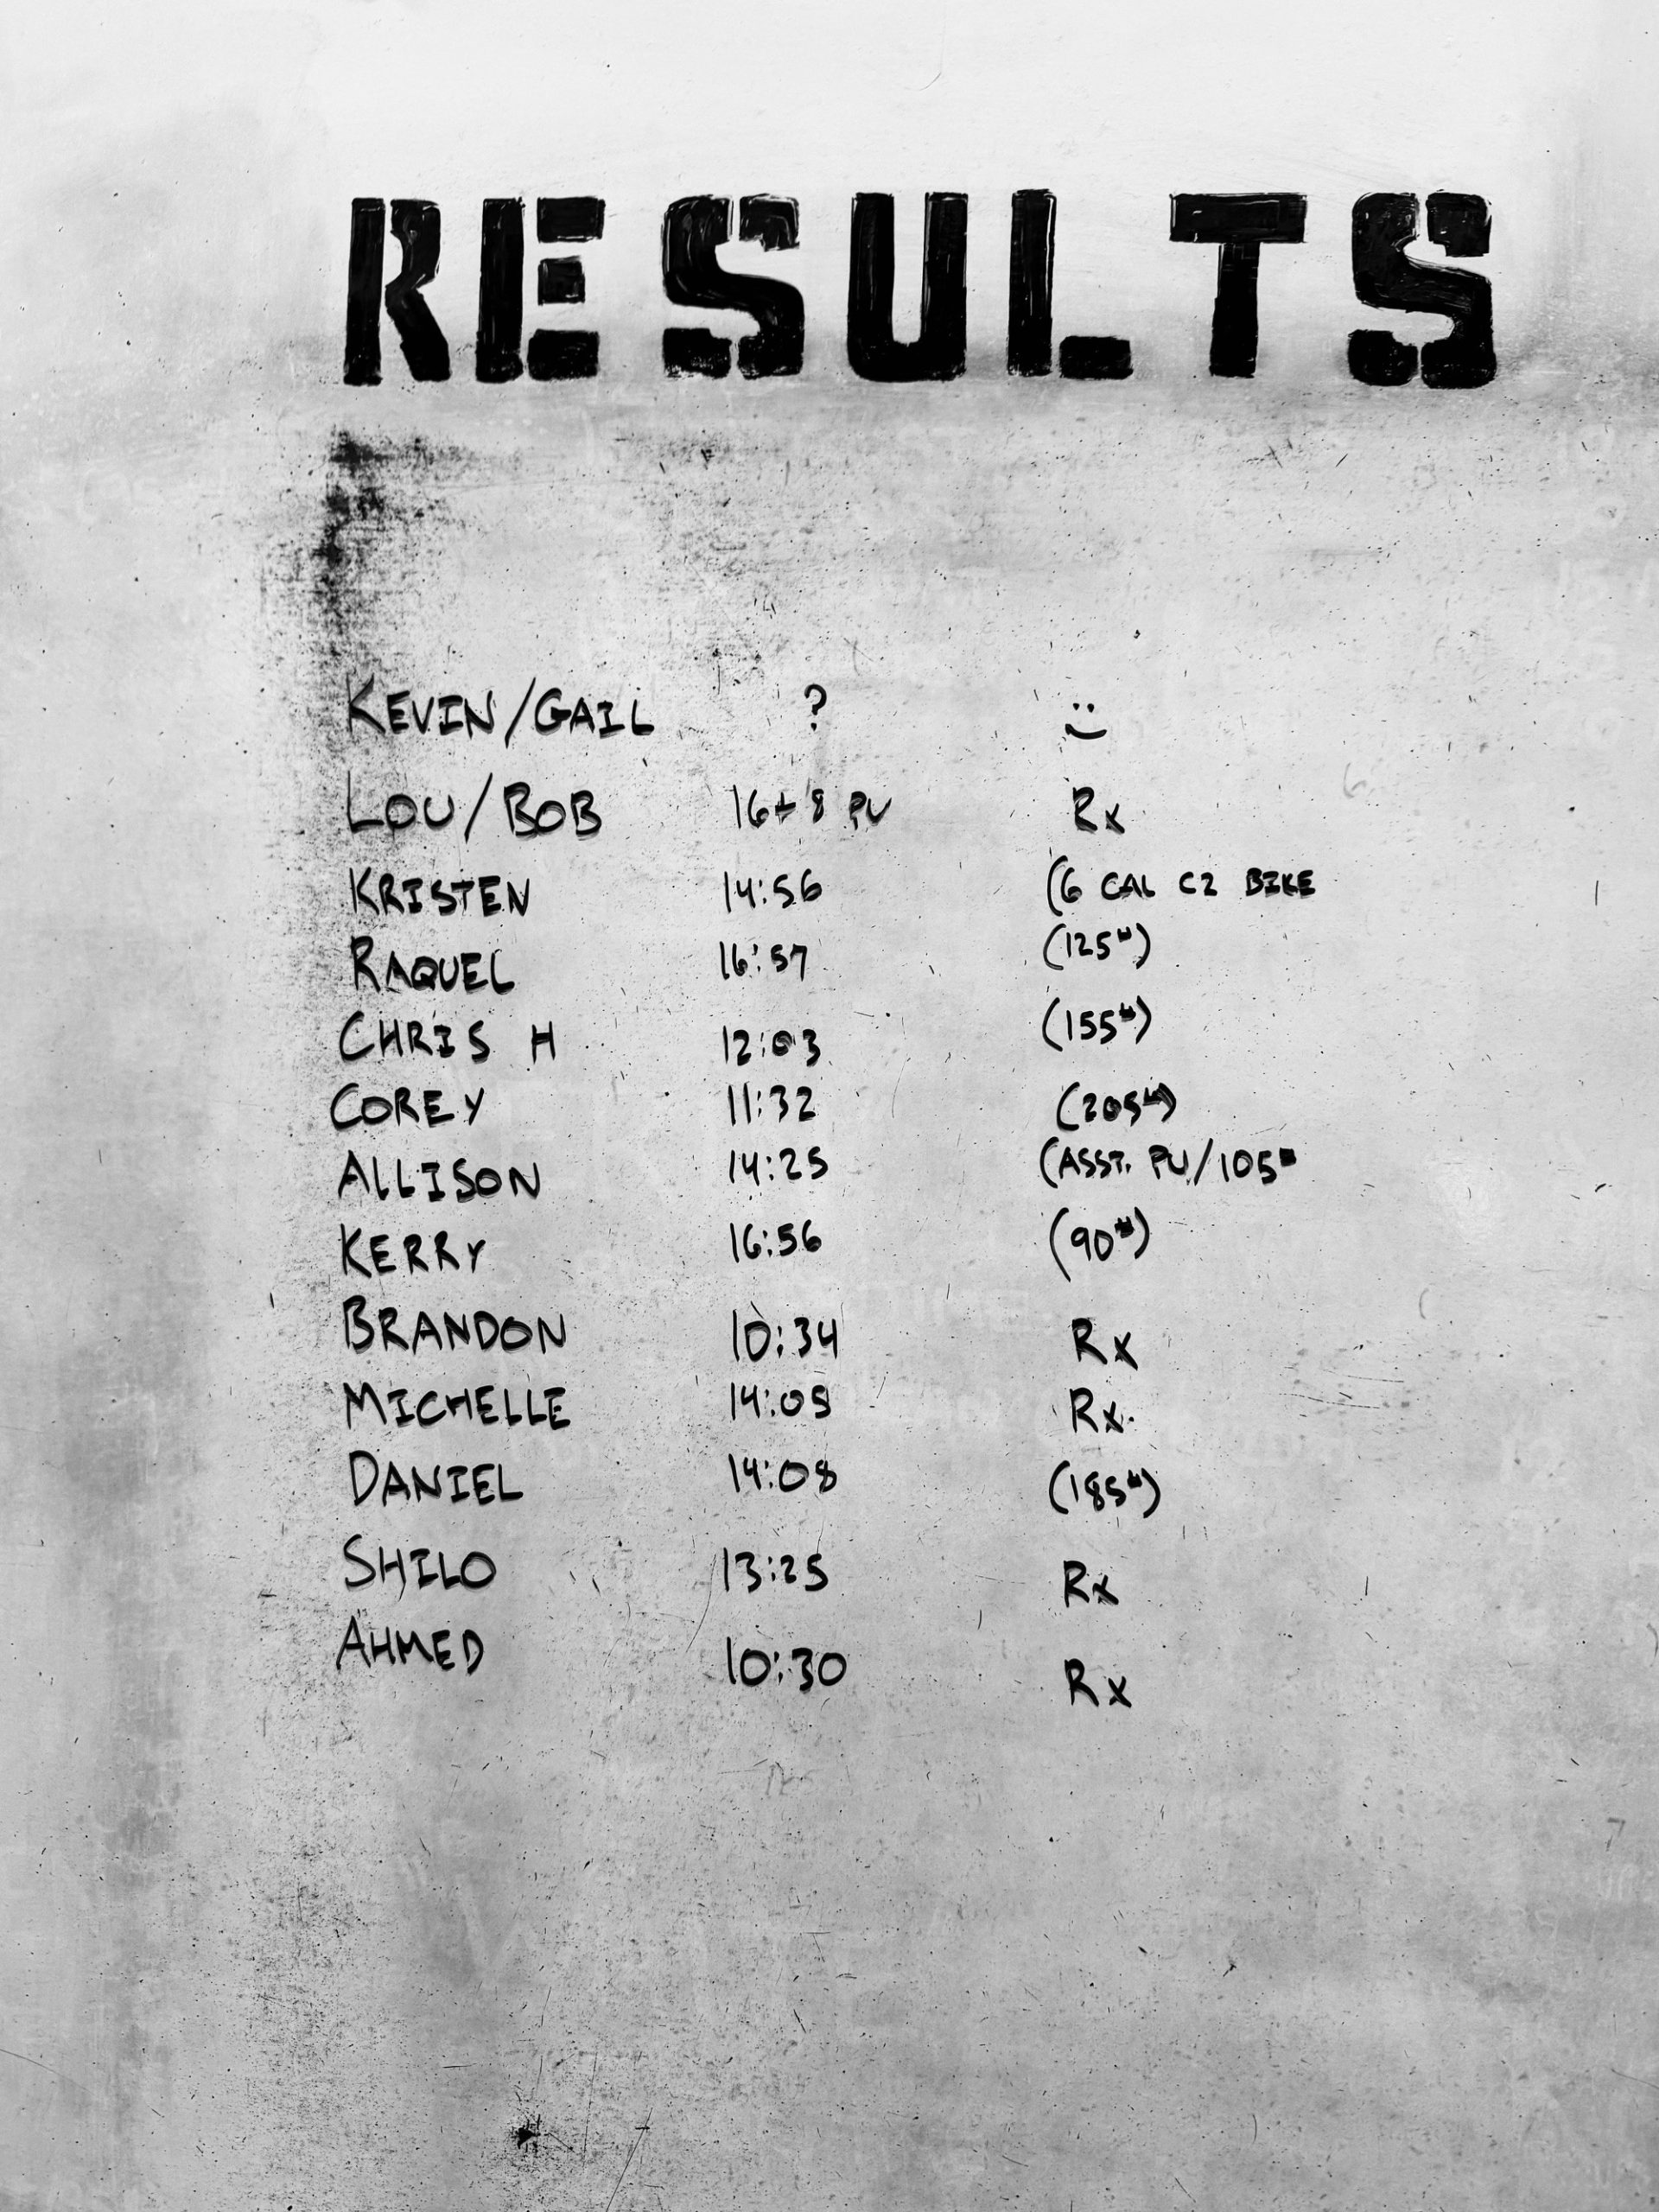 RESULTS
KEVIN/GAIL ? :)
LOU/BOB 16+8 PU Rx
KRISTEN 14:56 (6 CAL C2 BIKE
RAQUEL 16:57 (125#)
CHRIS H 12:03 (155#)
COREY 11:32 (205#)
ALLISON 14:25 (ASST. PU/105#
KERRY 16:56 (90#)
BRANDON 10:34 Rx
MICHELLE 14:05 Rx
DANIEL 14:08 (185#)
SHILO 13:25 Rx
AHMED 10:30 Rx